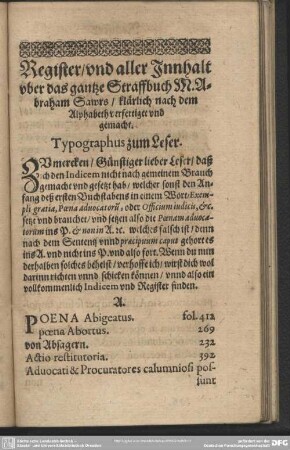 Register/vnd aller Innhalt
vber das gantze Straffbuch M. A-
braham Sawrs / klärlich nach dem
Alphabeth verfertiget vnd
gemacht.
Typographus zum Leser.
ZVmercken / Günstiger lieber Leser / daß
ich den Indicem nicht nach gemeinem Brauch
gemacht vnd gesetzt hab / welcher sonst den An-
fang deß ersten Buchstabens in einem Wort / Exem-
pli gratia, Pœna aduocatorũ, oder Officium iudicis, &c.
setzt vnd brauchet / vnd setzen also die Pœnam aduoca-
torum ins P. & non in A. ꝛc. welches falsch ist / dann
nach dem Sententz vnnd præcipuum caput gehört es
ins A. vnd nicht ins P. vnd also fort. Wenn du nun
derhalben solches behelst / verhoffe ich / wirst dich wol
darinn richten vnnd schicken können / vnnd also ein
vollkommenlich Indicem vnd Register finden.
A.
POENA Abigeatus. fol. 412
pœna Abortus. 269
von Absagern. 232
Actio restitutoria. 392
Aduocati & Procuratores calumniosi pos-
sunt